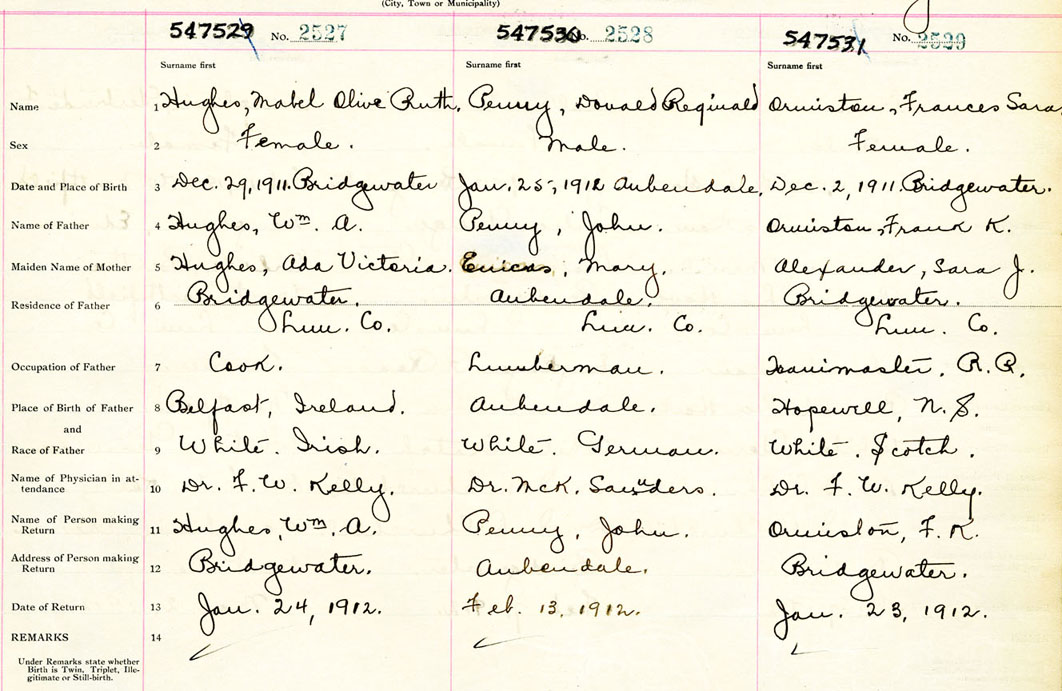 (City, Town or Municipality)
547529 No. 2527 547530 No. 2528 547531 No. 2529
Surname first Surname first Surname first
Name 1 Hughes, Mabel Olive Ruth. Penny, Donald Reginald Ormiston, Frances Sara
Sex 2 Female. Male. Female.
Date and Place of Birth 3 Dec. 29, 1911. Bridgewater Jan. 25, 1912 Aubendale, Dec. 2, 1911. Bridgewater.
Name of Father 4 Hughes, Wm. A. Penny, John. Ormiston, Frank K.
Maiden Name of Mother 5 Hughes, Ada Victoria. Mary. Alexander, Sara J.
Residence of Father 6 Bridgewater. Aubendale. Bridgewater.
Lun. Co. Lun. Co. Lun. Co.
Occupation of Father 7 Cook. Lumberman. Trainmaster, R.R.
Place of Birth of Father 8 Belfast, Ireland. Aubendale. Hopewell, N.S.
and
Race of Father 9 White. Irish. White. German. White. Scotch.
Name of Physician in at-
tendance 10 Dr. F. W. Kelly. Dr. McK. Saunders. Dr. F. W. Kelly.
Name of Person making
Return 11 Hughes, Wm. A. Penny, John. Ormiston, F. K.
Address of Person making
Return 12 Bridgewater. Aubendale. Bridgewater.
Date of Return 13 Jan. 24, 1912. Feb. 13, 1912. Jan. 23, 1912.
REMARKS 14
Under Remarks state whether
Birth is Twin, Triplet, Ille-
gitimate or Still-birth.